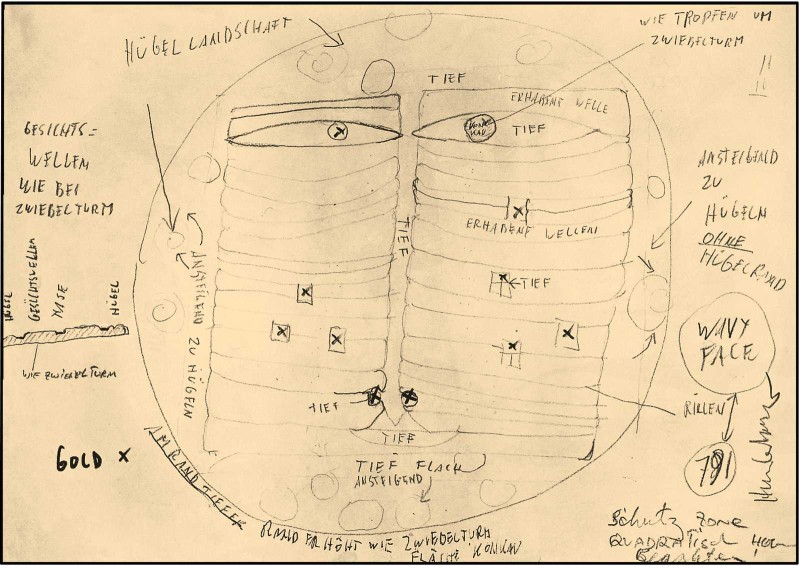 HÜGELLANDSCHAFT
WIE TROPFEN UM
ZWIEBELTURM
TIEF
ERHABENE WELLE
TIEF
KONKAV
GESICHTS=
WELLEN
WIE BEI
ZWIEBELTURM
ANSTEIGEND
ZU
HÜGELN
OHNE
HÜGELRAND
ERHABENE WELLEN
TIEF
TIEF
ANSTEIGEND ZU HÜGELN
HÜGEL
GESICHTSWELLEN
NASE
HÜGEL
WIE ZWIEBELTURM
WAVY
FACE
TIEF
RILLEN
TIEF
GOLD X
TIEF FLACH
ANSTEIGEND
791
AM RAND TIEFER
RAND ERHÖHT WIE ZWIEBELTURM
FLÄCHE KONKAV
SCHUTZ ZONE
QUADRATISCH